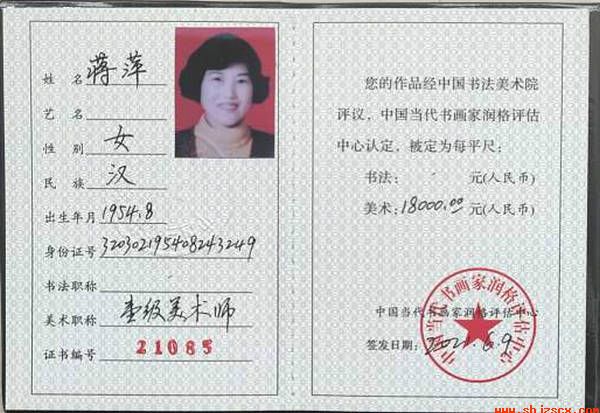 姓名 蒋萍
艺名
性别 女
民族 汉
出生年月 1954.8
身份证号 320302195408243249
书法职称
美术职称 壹级美术师
证书编号 21085
您的作品经中国书法美术院
评议，中国当代书画家润格评估
中心认定，被定为每平尺：
书法： 元(人民币)
美术：18000.00 元(人民币)
中国当代书画家润格评估中心
中国当代书画家润格评估中心
签发日期：2021.6.9
www.shjzscx.com